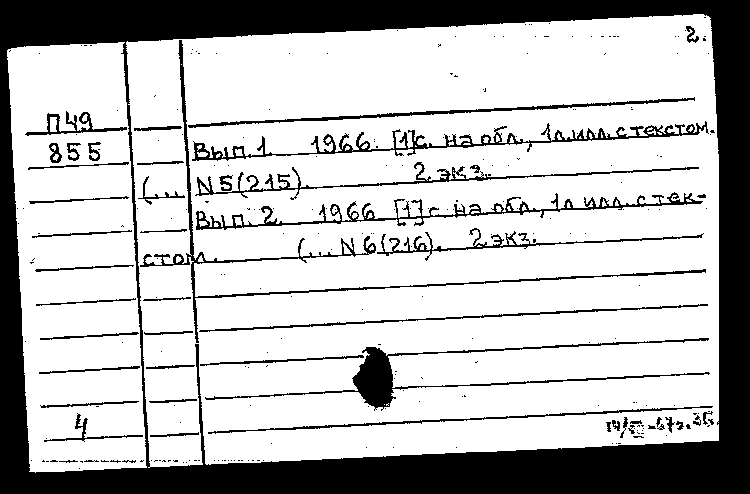 2.
П49
855
Вып. 1. 1966. [1]с. на обл., 1л.илл. с текстом.
(... N 5(215). 2 экз.
Вып. 2. 1966 [1] с. на обл., 1л илл. с тек-
стом. (... N 6(216). 2 экз.
4